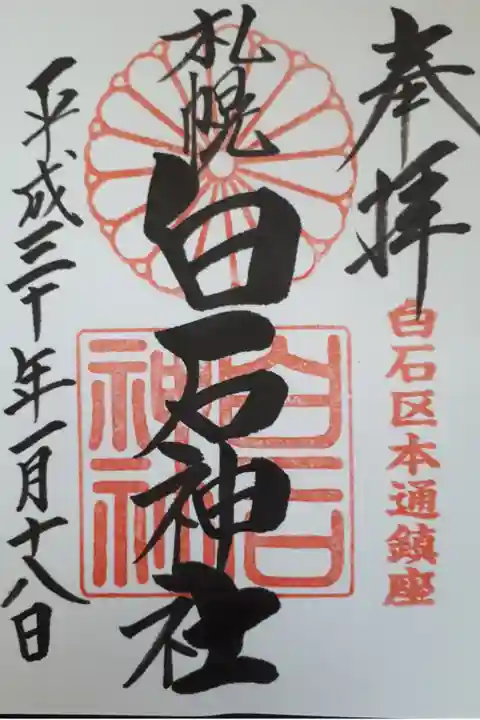 奉拝
白石区本通鎮座
札幌
白石神社
白石
神社
平成三十年一月十八日